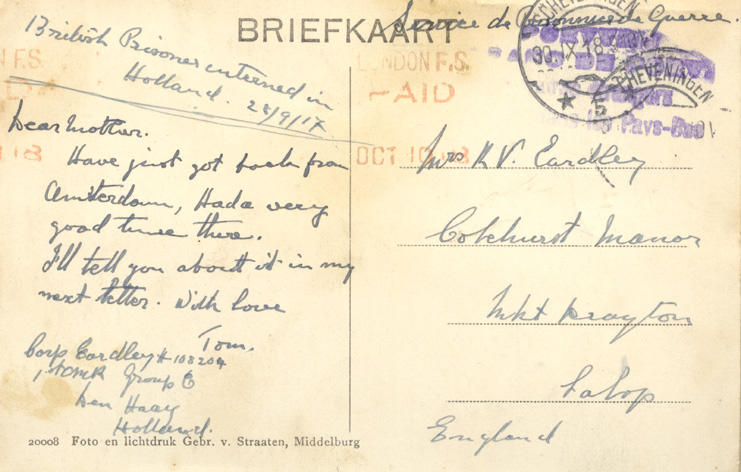 BRIEFKAART
Service de Prisonniers de Guerre.
British Prisoner interned in
Holland. 28/9/17
LONDON F.S.
PAID
OCT 10 18
N F.S.
SCHEVENINGEN
30.IX.18
5
SCHEVENINGEN
Pays-Bas
Dear Mother.
Have just got back from
Amsterdam, Had a very
good time there.
I'll tell you about it in my
next letter. With love
Tom.
Corp Eardley # 108204
1st CMR Group C
Den Haag
Holland.
Mrs R V. Eardley
Colehurst Manor
Mkt Drayton
Salop
England
20008 Foto en lichtdruk Gebr. v. Straaten, Middelburg